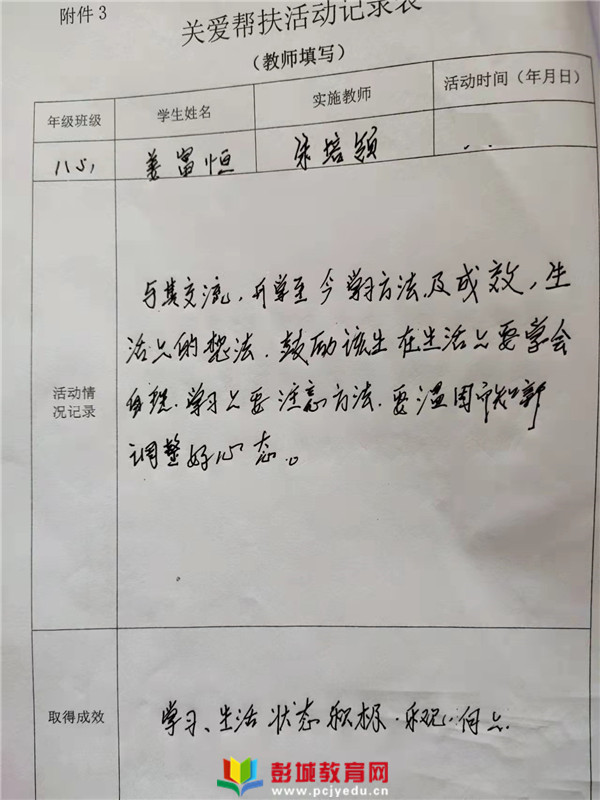 附件3
关爱帮扶活动记录表
（教师填写）
年级班级 学生姓名 实施教师 活动时间（年月日）
姜富恒 宋培颖 . .
与其交流，开学至今学习方法及成效，生
活上的想法．鼓励该生在生活上要学会
自理．学习上要注意方法．要温故而知新
调整好心态。
活动情
况记录
取得成效
学习、生活状态积极．乐观．向上．
彭城教育网
www.pcjyedu.cn